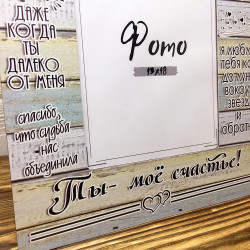 ДАЖЕ
КОГДА
ТЫ
ДАЛЕКО
ОТ МЕНЯ
спасибо,
что судьба
нас
объединила
Фото
я люблю
тебя
до
звезд
и
обратно
Ты - моё счастье!